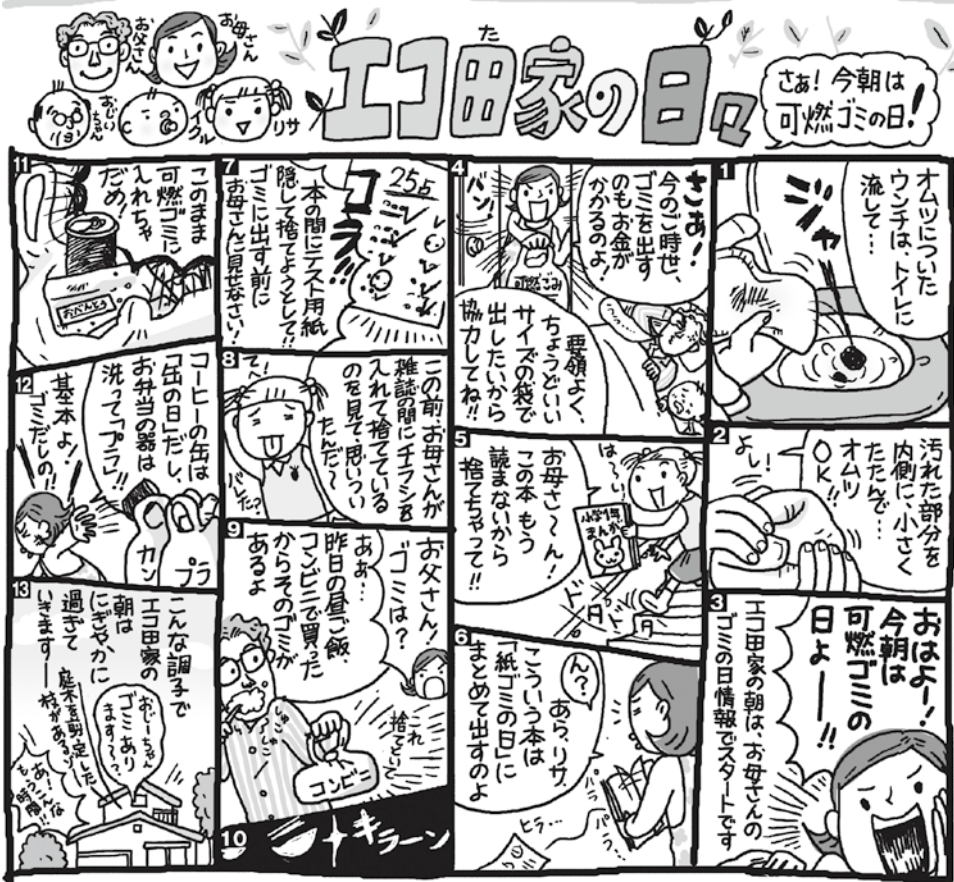 エコ田家の日々
た
お父さん
お母さん
おじいちゃん
イクル
リサ
さぁ!今朝は
可燃ゴミの日!
1
オムツについた
ウンチは、トイレに
流して…
ジャー
2
汚れた部分を
内側に、小さく
たたんで…
オムツ
OK!!
よし!
3
おはよー!
今朝は
可燃ゴミの
日よ——!!
エコ田家の朝は、お母さんの
ゴミの日情報でスタートです
4
さぁ!
今のご時世、
ゴミを出す
のもお金が
かかるのよ!
バン!
可燃ごみ
要領よく、
ちょうどいい
サイズの袋で
出したいから
協力してね!!
5
は〜い!
お母さ〜ん!
この本もう
読まないから
捨てちゃって!!
小学1年
まんが
ドタドタ
6
ん?
あら、リサ。
こういう本は
「紙ゴミの日」に
まとめて出すのよ
パラパラ…
ヒラ…
7
25点
コラ!!
本の間にテスト用紙
隠して捨てようとして!!
ゴミに出す前に
お母さんに見せなさい!
8
この前、お母さんが
雑誌の間にチラシを
入れて捨てている
のを見て、思いつい
たんだ〜
バレた?
9
お父さん!
ゴミは?
あぁ…
昨日の昼ご飯、
コンビニで買った
からそのゴミが
あるよ
これ
捨てといて
コンビニ
10
キラーン
11
このまま
可燃ゴミに
入れちゃ
だめ!
おべんとう
12
コーヒーの缶は
「缶の日」だし、
お弁当の器は
洗って「プラ」!!
基本よ!
ゴミだしの!!
カン
プラ
13
こんな調子で
エコ田家の
朝は
にぎやかに
過ぎて
いきます——
おじーちゃん
ゴミあり
ます〜?
庭木を剪定した
枝があるゾ
あ!こんな
時間!!